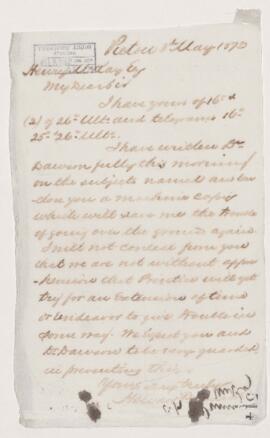 Pictou 8th May 1873
My Dear Sir
I have yours of 16th &
(2) of 26th Ulto and telegrams 16th
25th 26th Ulto.
I have written Dr
Dawson fully this morning
on the subjects named and
you a machine copy
which will save me the trouble
of going over the ground again.
I will not conceal from you
that we are not without appre
hension that Prentice will yet
try for an Extension of time
or Endeavor to give trouble in
some way. We expect you and
Dr Dawson to be very guarded
in preventing this.
Yours Very Truly